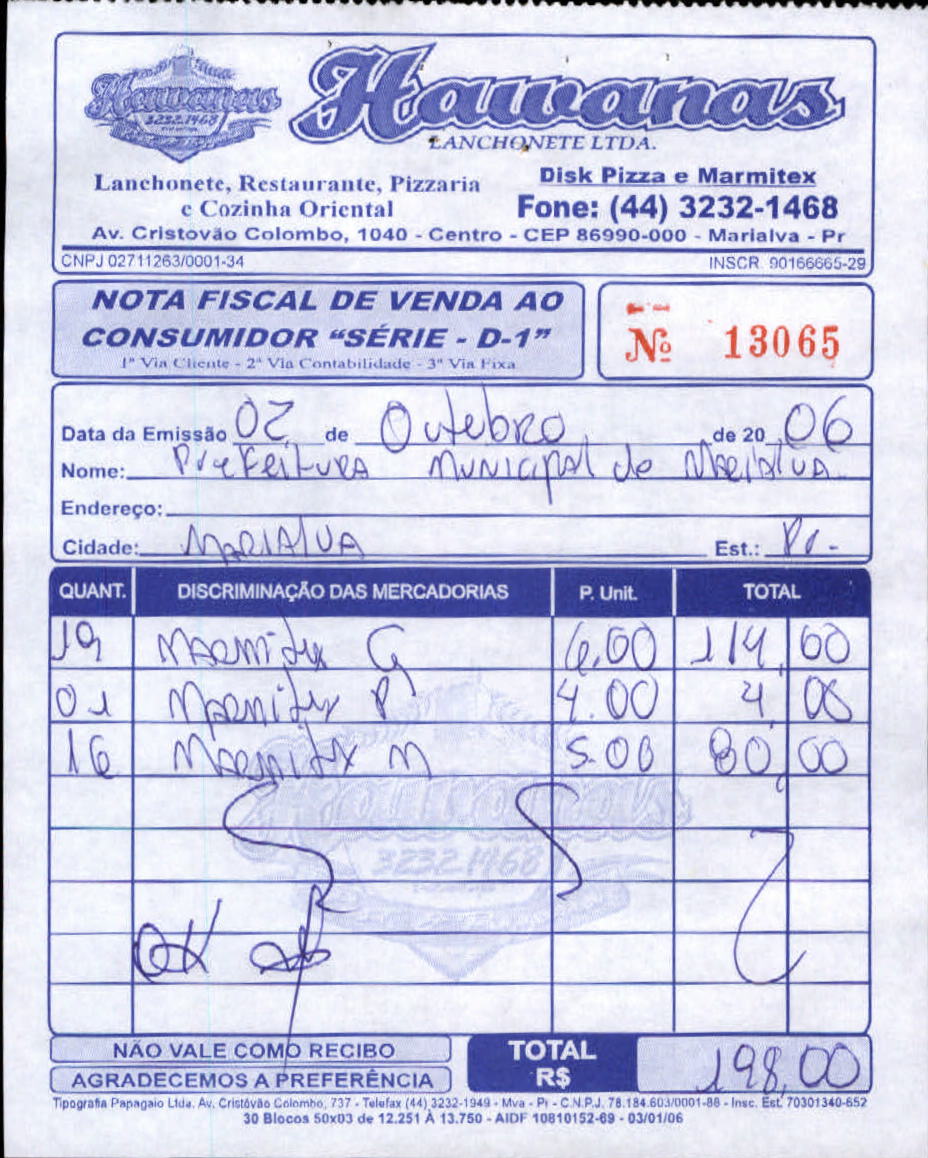 Hawanas
3232.1468
Hawanas
LANCHONETE LTDA.
Lanchonete, Restaurante, Pizzaria
e Cozinha Oriental
Disk Pizza e Marmitex
Fone: (44) 3232-1468
Av. Cristovão Colombo, 1040 - Centro - CEP 86990-000 - Marialva - Pr
CNPJ 02711263/0001-34 INSCR. 90166665-29
NOTA FISCAL DE VENDA AO
CONSUMIDOR “SÉRIE - D-1”
1ª Via Cliente - 2ª Via Contabilidade - 3ª Via Fixa
Nº 13065
Data da Emissão 02 de Outubro de 20 06
Nome: Prefeitura Municipal de Marialva
Endereço:
Cidade: MARIALVA Est.: Pr.
QUANT. DISCRIMINAÇÃO DAS MERCADORIAS P. Unit. TOTAL
19 Marmitex G 6.00 114,00
01 Marmitex P 4.00 4,00
16 Marmitex M 5.00 80,00
Hawanas
3232.1468
OK
NÃO VALE COMO RECIBO
AGRADECEMOS A PREFERÊNCIA
TOTAL R$ 198,00
Tipografia Papagaio Ltda. Av. Cristóvão Colombo, 737 - Telefax (44) 3232-1949 - Mva - Pr - C.N.P.J. 78.184.603/0001-88 - Insc. Est. 70301340-652
30 Blocos 50x03 de 12.251 À 13.750 - AIDF 10810152-69 - 03/01/06